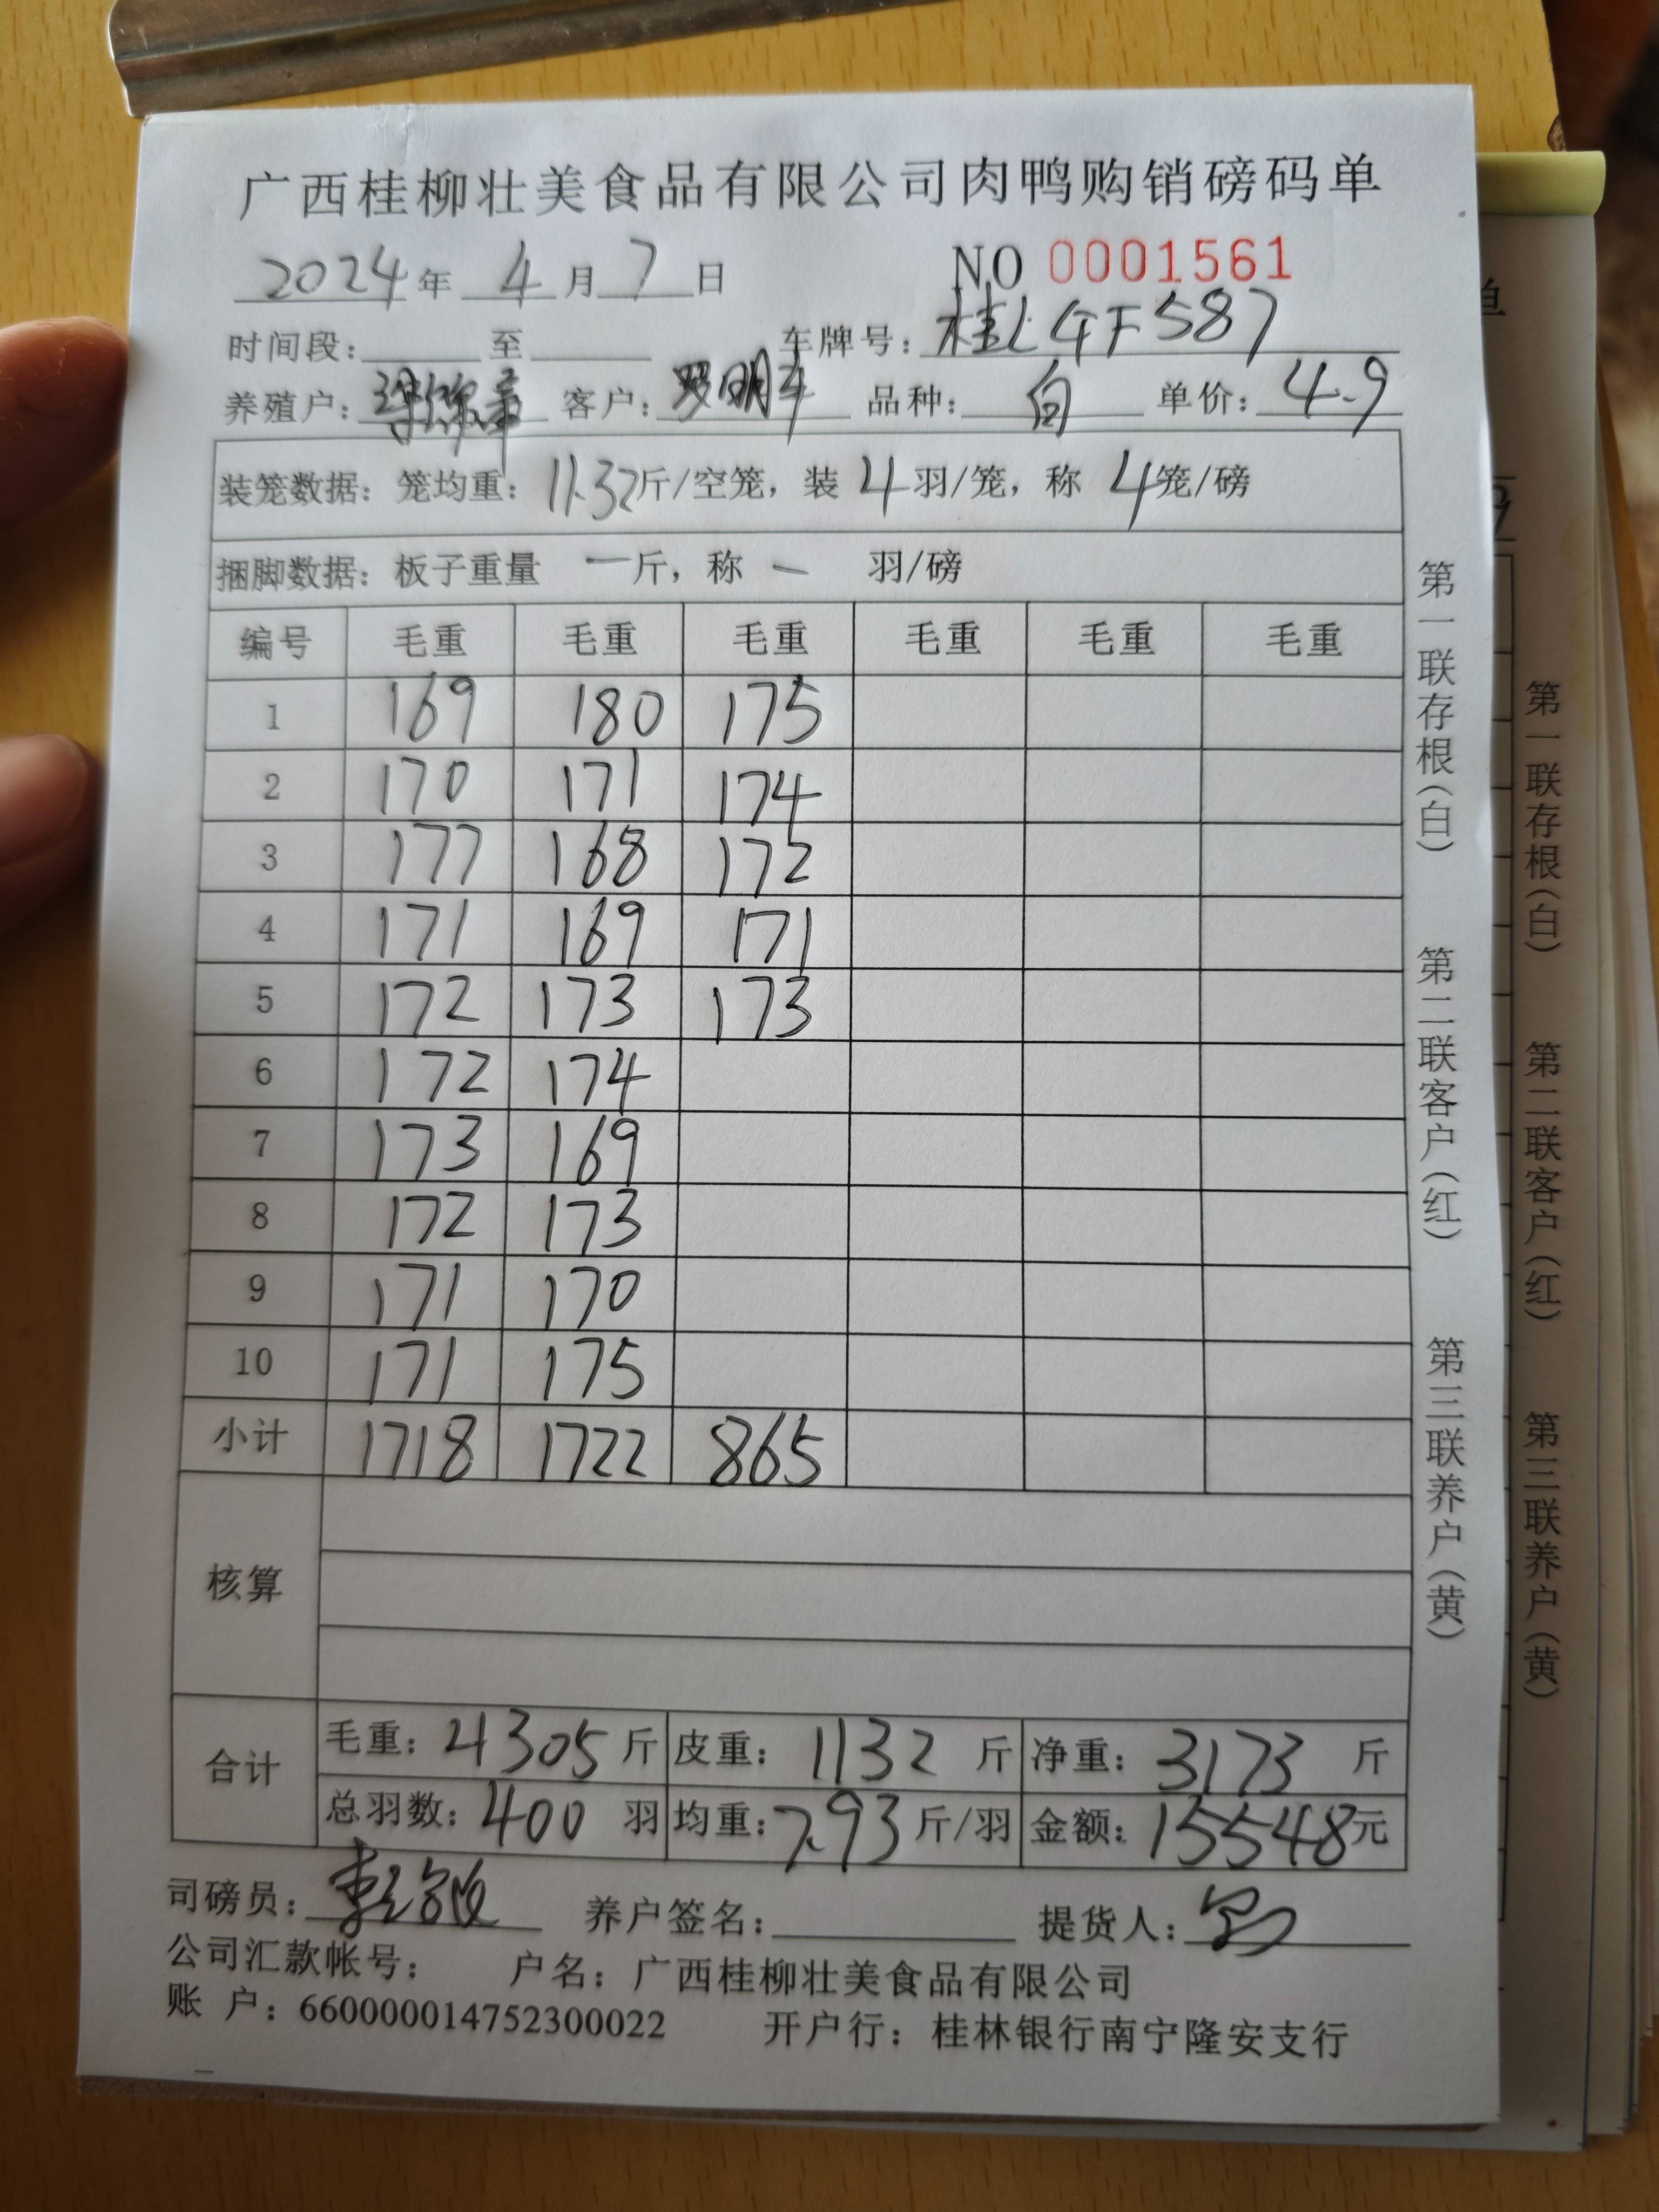 广西桂柳壮美食品有限公司肉鸭购销磅码单
2024年 4月7日 NO 0001561
时间段: 至 车牌号: 桂LGF587
养殖户: 客户: 罗明 品种: 白 单价: 4.9
装笼数据: 笼均重: 11.32斤/空笼, 装 4羽/笼, 称 4笼/磅
捆脚数据: 板子重量 一斤, 称 一 羽/磅
编号 毛重 毛重 毛重 毛重 毛重 毛重
1 169 180 175
2 170 171 174
3 177 168 172
4 171 169 171
5 172 173 173
6 172 174
7 173 169
8 172 173
9 171 170
10 171 175
小计 1718 1722 865
核算
合计 毛重: 4305斤 皮重: 1132斤 净重: 3173斤
总羽数: 400羽 均重: 7.93斤/羽 金额: 15548元
司磅员: 养户签名: 提货人:
公司汇款帐号: 户名: 广西桂柳壮美食品有限公司
账 户: 660000014752300022 开户行: 桂林银行南宁隆安支行
第一联存根(白) 第二联客户(红) 第三联养户(黄)
单
第一联存根(白) 第二联客户(红) 第三联养户(黄)